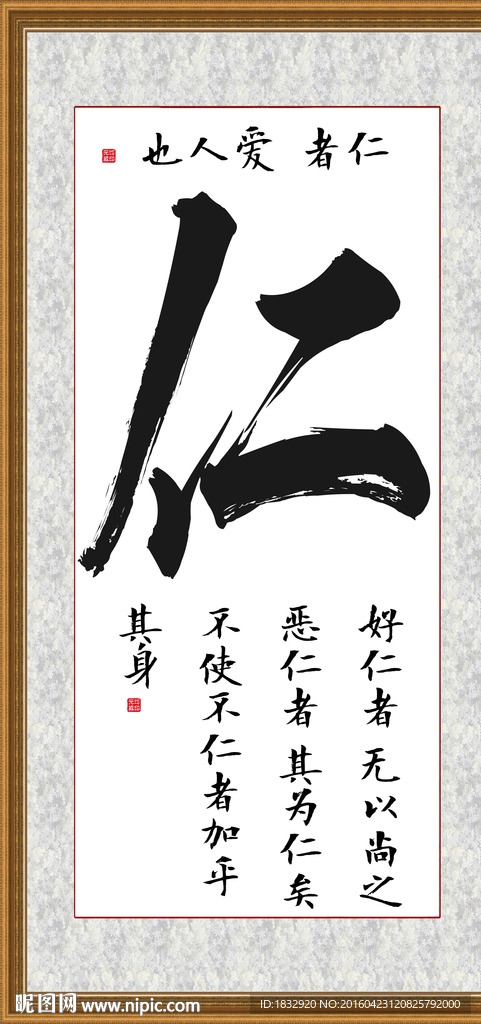 仁者 爱人也
仁
好仁者 无以尚之
恶仁者 其为仁矣
不使不仁者加乎
其身
昵图网 www.nipic.com
ID:1832920 NO:20160423120825792000